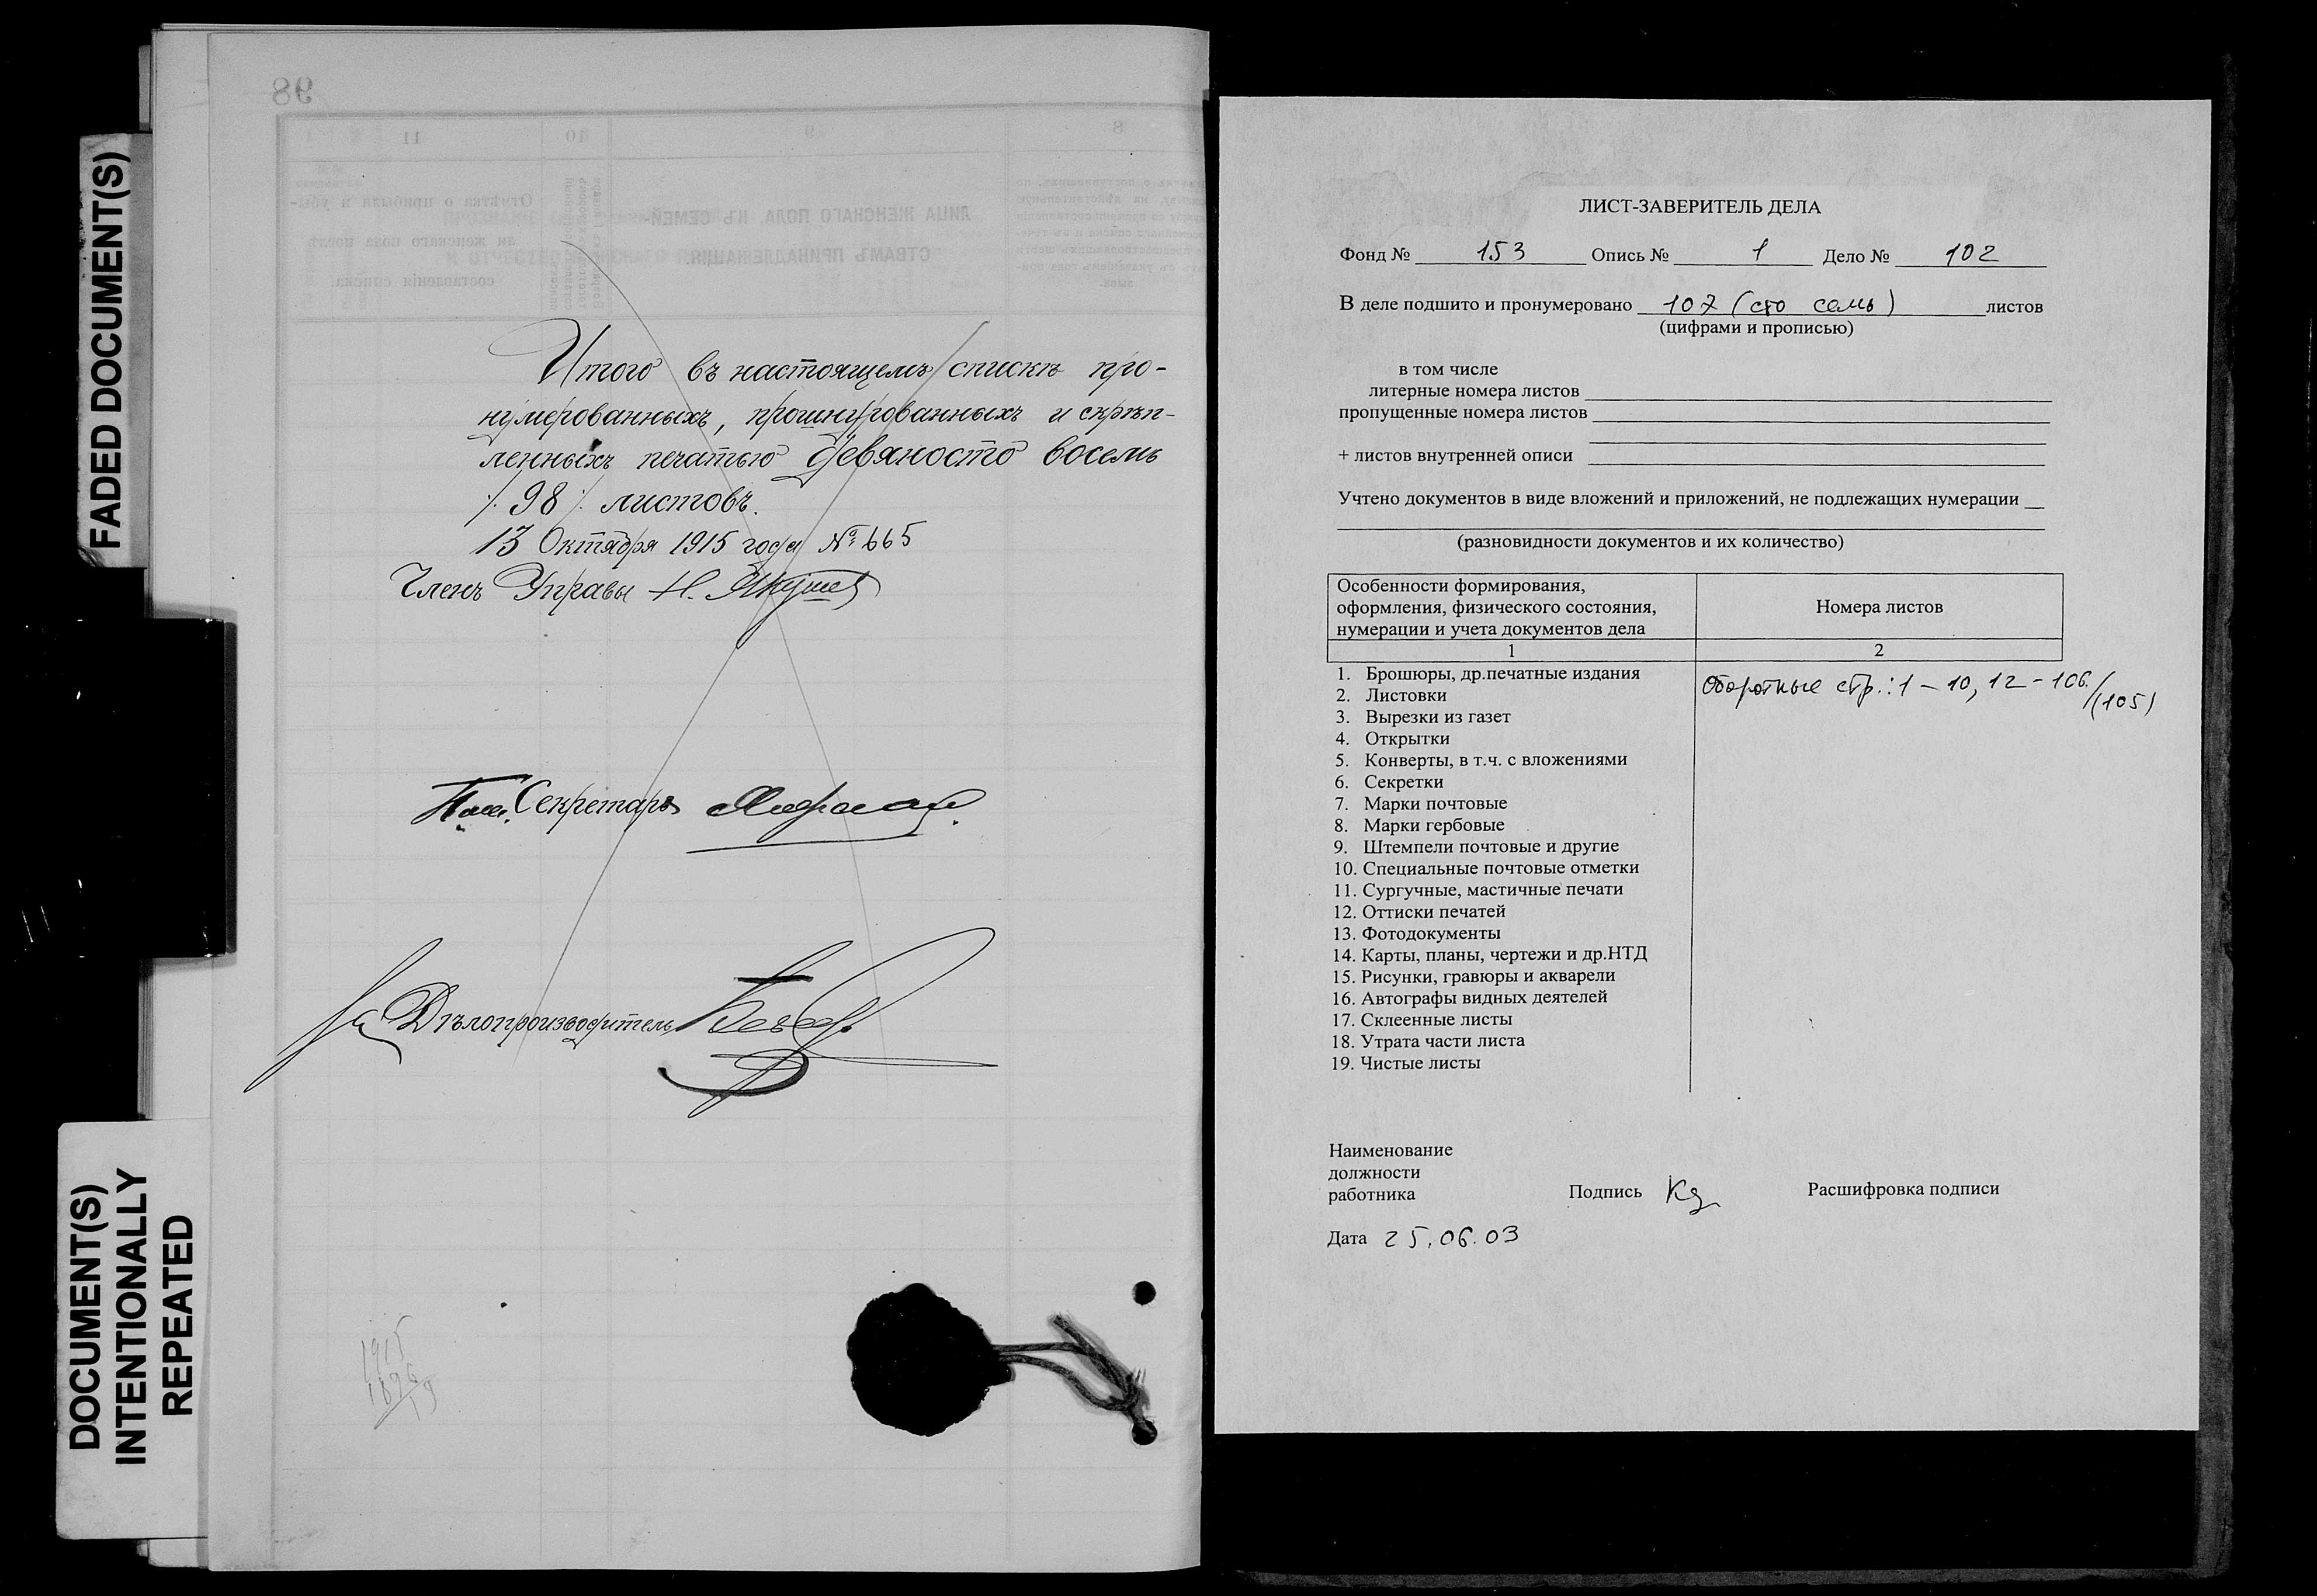 FADED DOCUMENT(S)
DOCUMENT(S)
INTENTIONALLY
REPEATED
98
Итого въ настоящемъ спискѣ про-
нумерованныхъ, прошнурованныхъ и скрѣп-
ленныхъ печатью девяносто восемь
/. 98 /. листовъ.
13 Октября 1915 года № 665
Членъ Управы Н.
Пом. Секретаря
За Дѣлопроизводитель
1915
1896
19
ЛИСТ-ЗАВЕРИТЕЛЬ ДЕЛА
Фонд № 153 Опись № 1 Дело № 102
В деле подшито и пронумеровано 107 (сто семь) листов
(цифрами и прописью)
в том числе
литерные номера листов
пропущенные номера листов
+ листов внутренней описи
Учтено документов в виде вложений и приложений, не подлежащих нумерации
(разновидности документов и их количество)
Особенности формирования,
оформления, физического состояния,
нумерации и учета документов дела
Номера листов
1
2
1. Брошюры, др.печатные издания
2. Листовки
3. Вырезки из газет
4. Открытки
5. Конверты, в т.ч. с вложениями
6. Секретки
7. Марки почтовые
8. Марки гербовые
9. Штемпели почтовые и другие
10. Специальные почтовые отметки
11. Сургучные, мастичные печати
12. Оттиски печатей
13. Фотодокументы
14. Карты, планы, чертежи и др.НТД
15. Рисунки, гравюры и акварели
16. Автографы видных деятелей
17. Склеенные листы
18. Утрата части листа
19. Чистые листы
Оборотные стр.: 1 – 10, 12 – 106./(105)
Наименование
должности
работника
Подпись
Расшифровка подписи
Дата 25.06.03